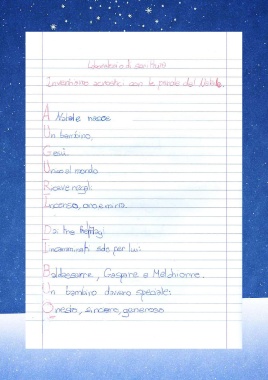 Laboratorio di scrittura
Inventiamo acrostici con le parole del Natale.
A Natale nasce
Un bambino,
Gesù
Unico al mondo
Riceve regali:
Incenso, oro e mirra.
Dai tre Re Magi
Incamminati solo per lui:
Baldassarre, Gaspare e Melchiorre.
Un bambino davvero speciale:
Onesto, sincero, generoso